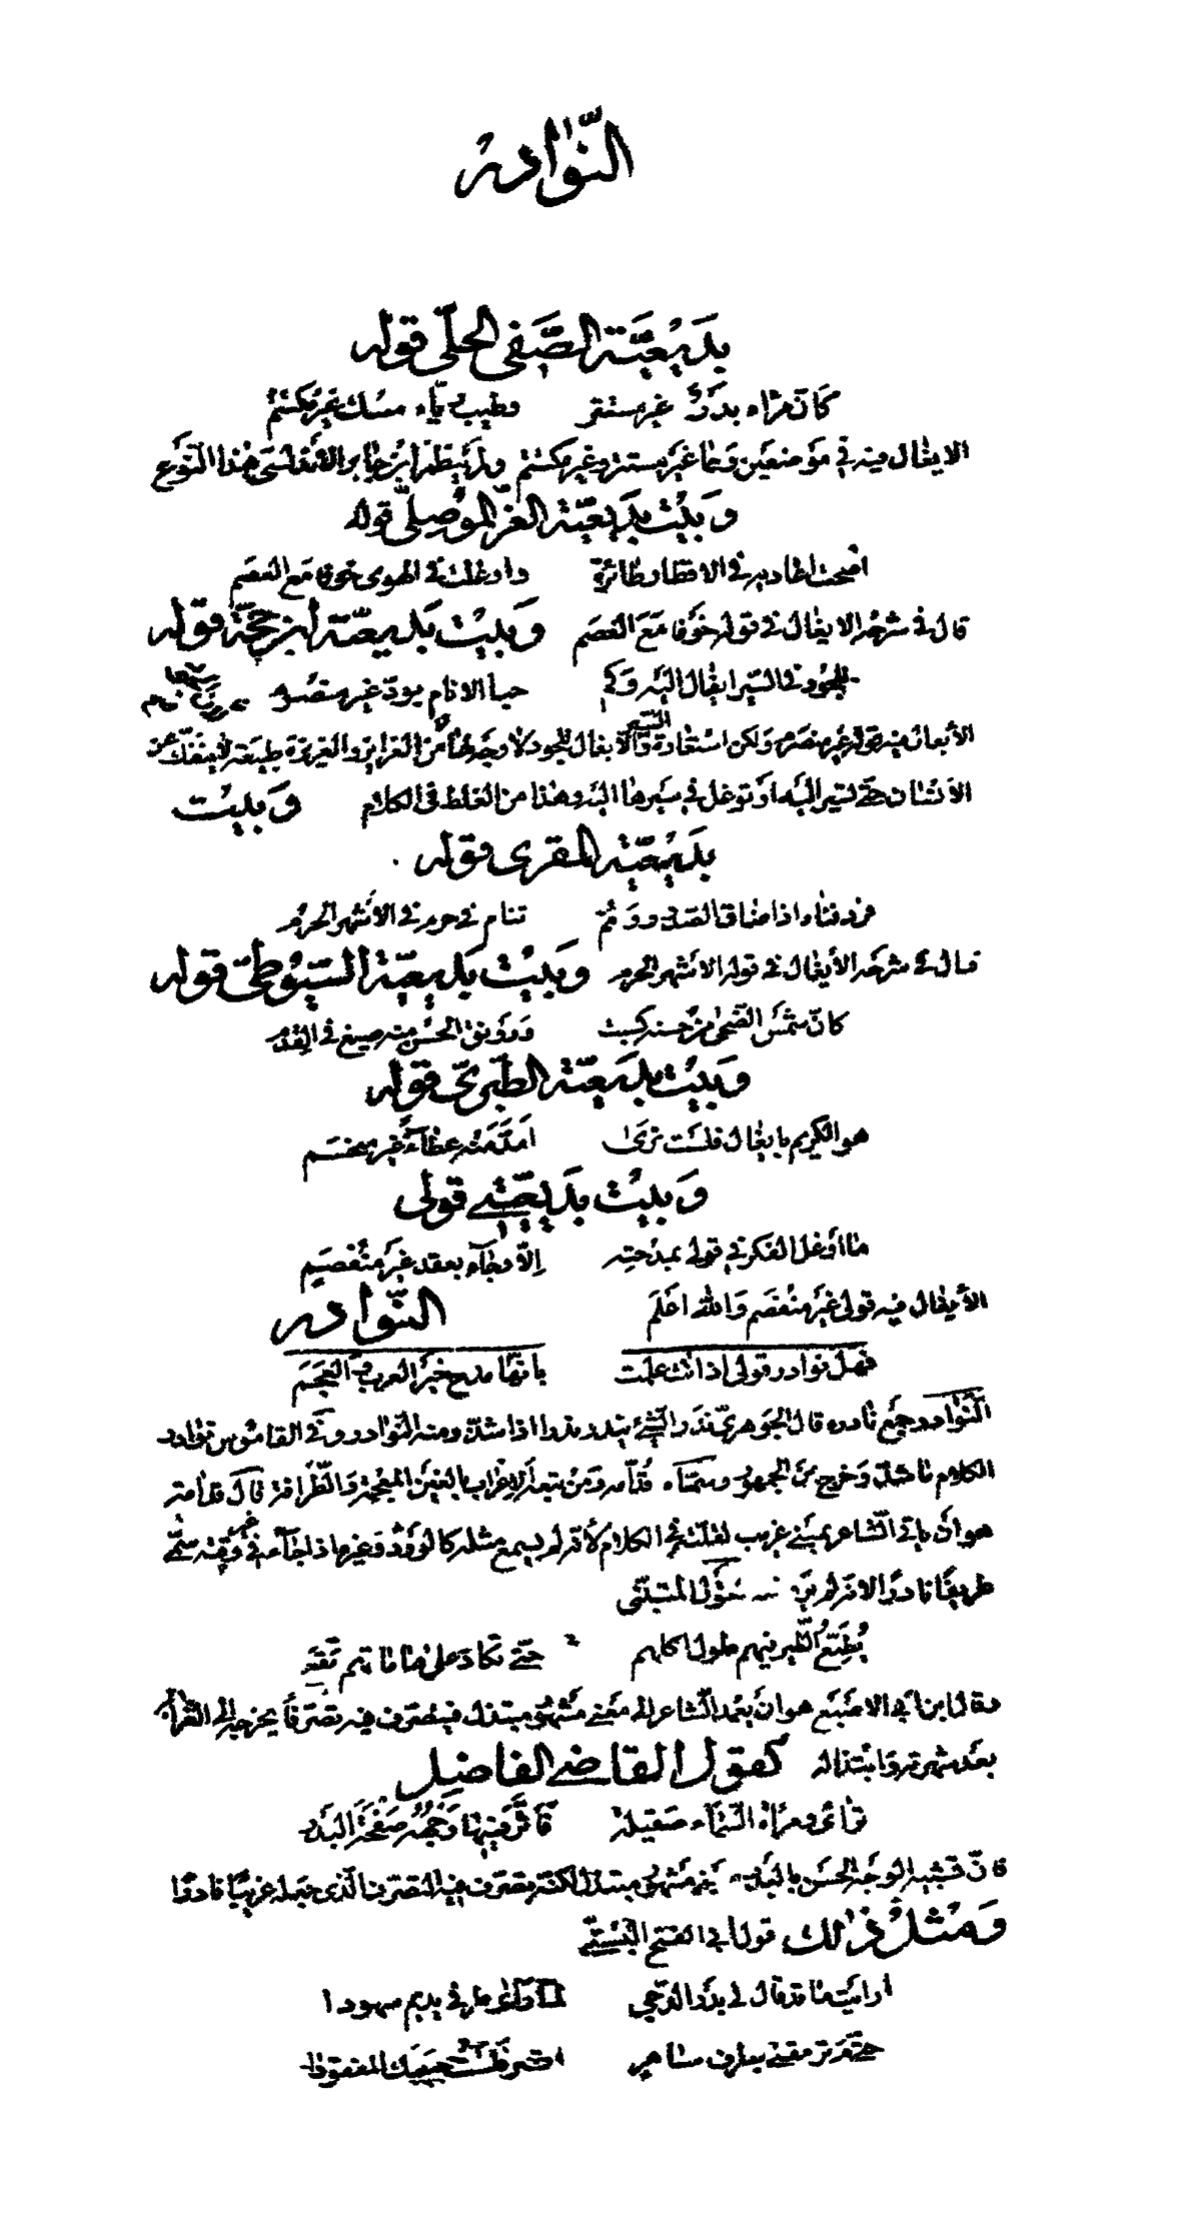 النّوادر
بديعيّة الصّفى الحلّى قوله
كأنّ مرآه بدر غير مستتر وطيب ريّاه مسك غير مكتتم
الايغال فيه في موضعين وهما غير مستتر وغير مكتتم ولم ينظم ابن جابر الأندلسى هذا النّوع
وبيت بديعيّة العزّ الموصلىّ قوله
اضحت اعاديه في الاقطار طائرة واوغلت في الهوى خوفا مع العصم
قال في شرحه الايغال في قوله خوفا مع العصم وبيت بديعيّة ابن حجّة قوله
للجود في السّير ايغال اليه وكم حبا الانام بودّ غير منصرم
الأيغال فيه قوله غير منصرم ولكن استعارة الأيغال للجود لا وجه لها من الغرايز والغريزة طبيعة لا ينفكّ عن
الانسان حتّى تسير اليه او توغل في سيرها اليه وهذا من الغلط في الكلام وبيت
بديعيّة المقرى قوله
فزد فناه اذا ضاق الصدور وثمّ تنام في حرم في الأشهر الحرم
قال في شرحه الأيغال في قوله الاشهر الحرم وبيت بديعيّة السّيوطىّ قوله
كانّ شمس الضّحى من حسنه كسبت ورونق الحسن منه صيغ في القدم
وبيت بديعيّة الطّبرىّ قوله
هو الكريم بايغال فلست ترى امّله عطاء غير منحسم
وبيت بديعيّتي قولى
ما اوغل الفكر في قولى بمدحته إلّا وجاء بعقد غير منفصم
الأيغال فيه قولى غير منفصم والله اعلم النّوادر
فهل نوادر قولى اذ اتت علمت بانّها مدح خير العرب والعجم
النّوادر جمع نادره قال الجوهرىّ ندر الشّئ يندر ندرا اذا شذّ ومنه النّوادر وفي القاموس نوادر
الكلام ما شذّ وخرج من الجمهور وسمّاه قدامه ومن تبعه الاغراب بالغين المعجمة والطّرافة قال قدامة
هو ان ياتى الشّاعر بمعنى غريب لقلّته في الكلام لا انّه لم يسمع مثله كالورد وغيره اذا جاء في غير وقته سمّى
طريفا نادرا
يطمّع الطّير فيهم طول اكلهم حتّى تكاد على هاماتهم تقع
وقال ابن أبي الاصبع هو ان يعمد الشّاعر الى معنى مشهور مبتذل فيتصرّف فيه تصرّفا يخرجه الى الغرابة
بعد شهرته وابتذاله كقول القاضى الفاضل
تراءى ومرآة السّماء صقيلة فأثّر فيها وجهه صفحة البدر
فانّ تشبيه الوجه الحسن بالبدر مشهور مبتذل لكنّه تصرّف فيه التصرّف الّذى جعله غريبا نادرا
ومثل ذلك قول ابى الفتح البستىّ
ارايت ما قد قال لى بدر الدّجى لمّا رأى طرفى يديم سهودا
حتّى م ترمقنى بطرف ساهر اقصر فلست حبيبك المفقودا